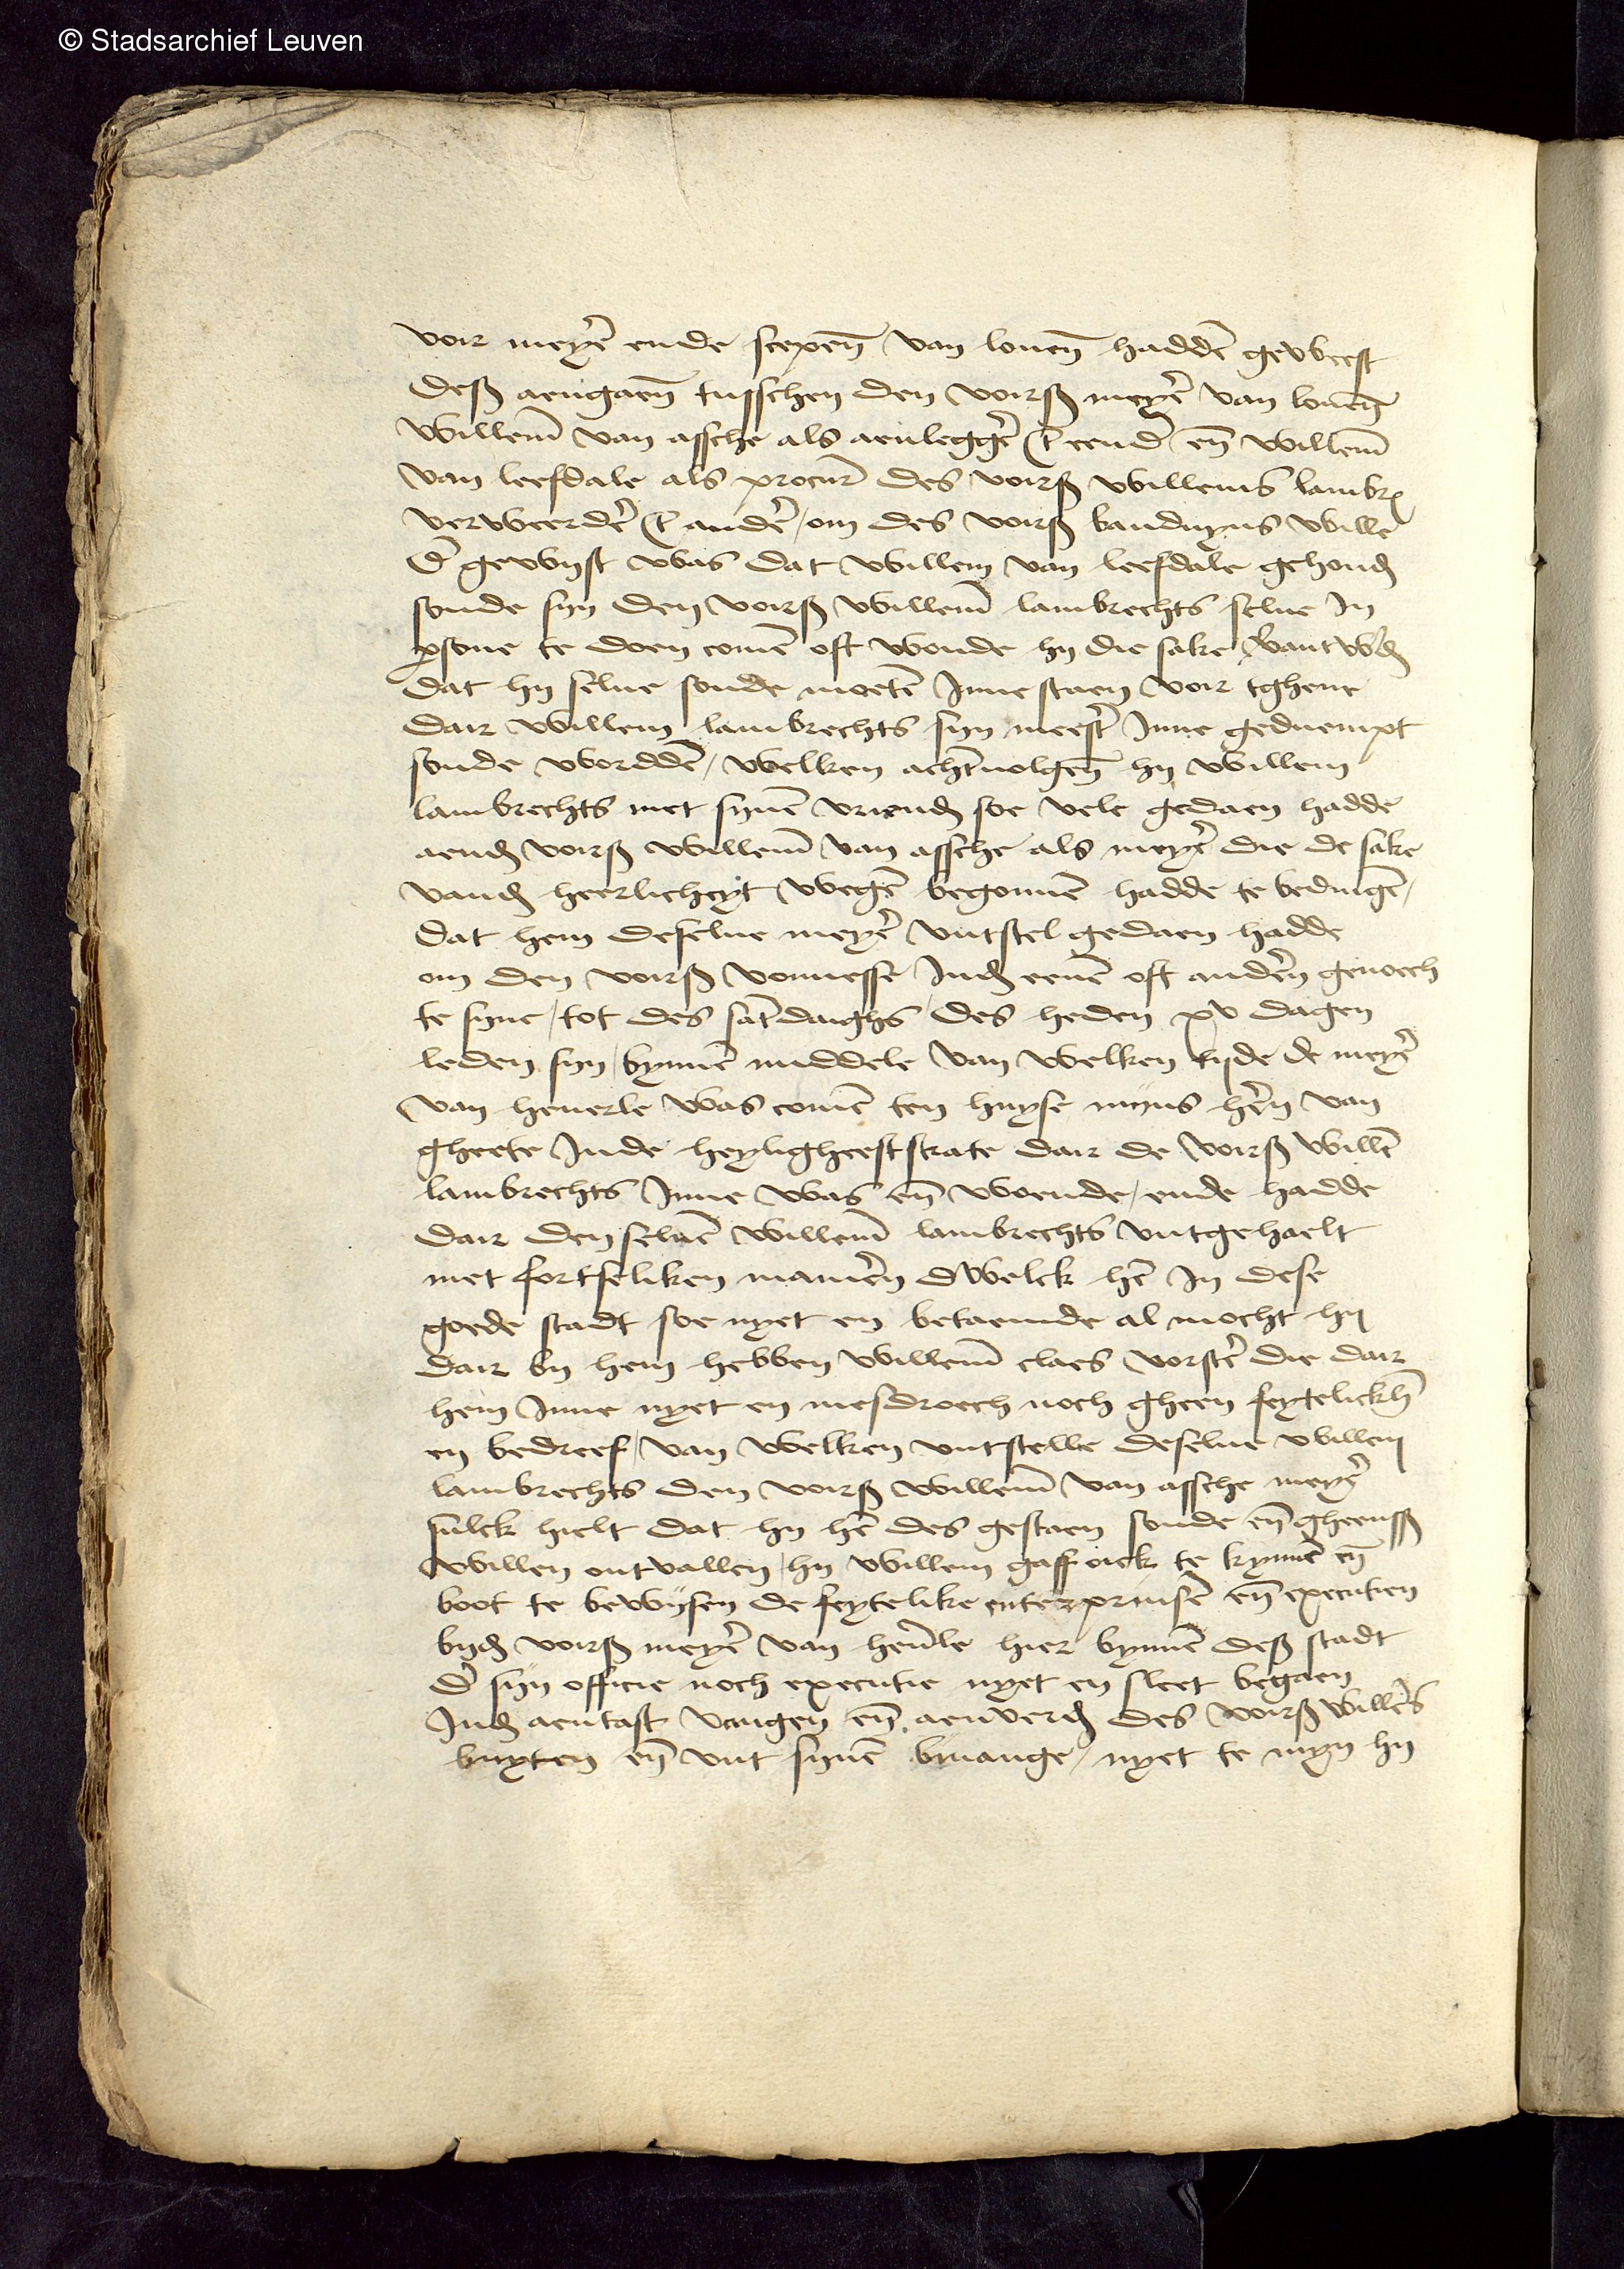 © Stadsarchief Leuven
voir meyer̄ ende scepen̄ van louen̄ haddē geweest
desz aengaen̄ tusschen den voirs̄ meyer̄ van louen̄
willem̄ van assche als aenlegger̄ t̄ eend̄ en̄ willem̄
van leefdale als procur̄ des voirs̄ willems lambr̄
verweerder̄ t̄ ander̄ / om des voirs̄ bauduyns wille
d̄ gewyst was dat willem van leefdale gehoud̄
soude syn den voirs̄ willem̄ lambrechts selue in
psone te doen comē oft woude hy die sake v̄antw̄d̄
dat hy selue soude moetē Inne staen voir tghene
dair willem lambrechts syn meest̄ Inne geduempt
soude worddē / welken acht̄uolgen̄ hy willem
lambrechts met synē vriend̄ soe vele gedaen hadde
aend̄ voirs̄ willem̄ van assche als meyer̄ die de sake
vand̄ heerlicheyt wegē begonnē hadde te bedingē /
dat hem deselue meyer̄ vutstel gedaen hadde
om den voirs̄ vonnesse Ind̄ eenē oft ander̄n genoech
te syne / tot des sat̄daighs des heden xv dagen
leden syn / bynnē middele van welken tyde de meyer̄
van heuerle was comē ten huyse myns her̄n van
gheete Inde heyligheeststrate dair de voirs̄ willē
lambrechts Inne was en̄ woende / ende hadde
dair den seluē willem̄ lambrechts vutgehaelt
met fortseliken manier̄n dwelck hē in dese
goede stadt soe nyet en betaemde al mocht hy
dair by hem hebben willem̄ claes vorster̄ die dair
hem Inne nyet en mesdroech noch gheen feytelickh̄
en bedreef / van welken vutstelle deselue willem
lambrechts den voirs̄ willem̄ van assche meyer̄
sulck hielt dat hy hē des gestaen soude en̄ gheenss̄
willen ontvallen / hy willem gaff oick te kynnē en̄
boot te bewysen de feytelike enterprinsē en̄ executien
byd̄ voirs̄ meyer̄ van heūle hier bynnē desz stadt
d̄ syn officie noch executie nyet en sleet begaen
Ind̄ aentast vangen en̄ aenverd̄ des voirs̄ willē̄s
buyten en̄ vut synē bijuange / nyet te myn hy